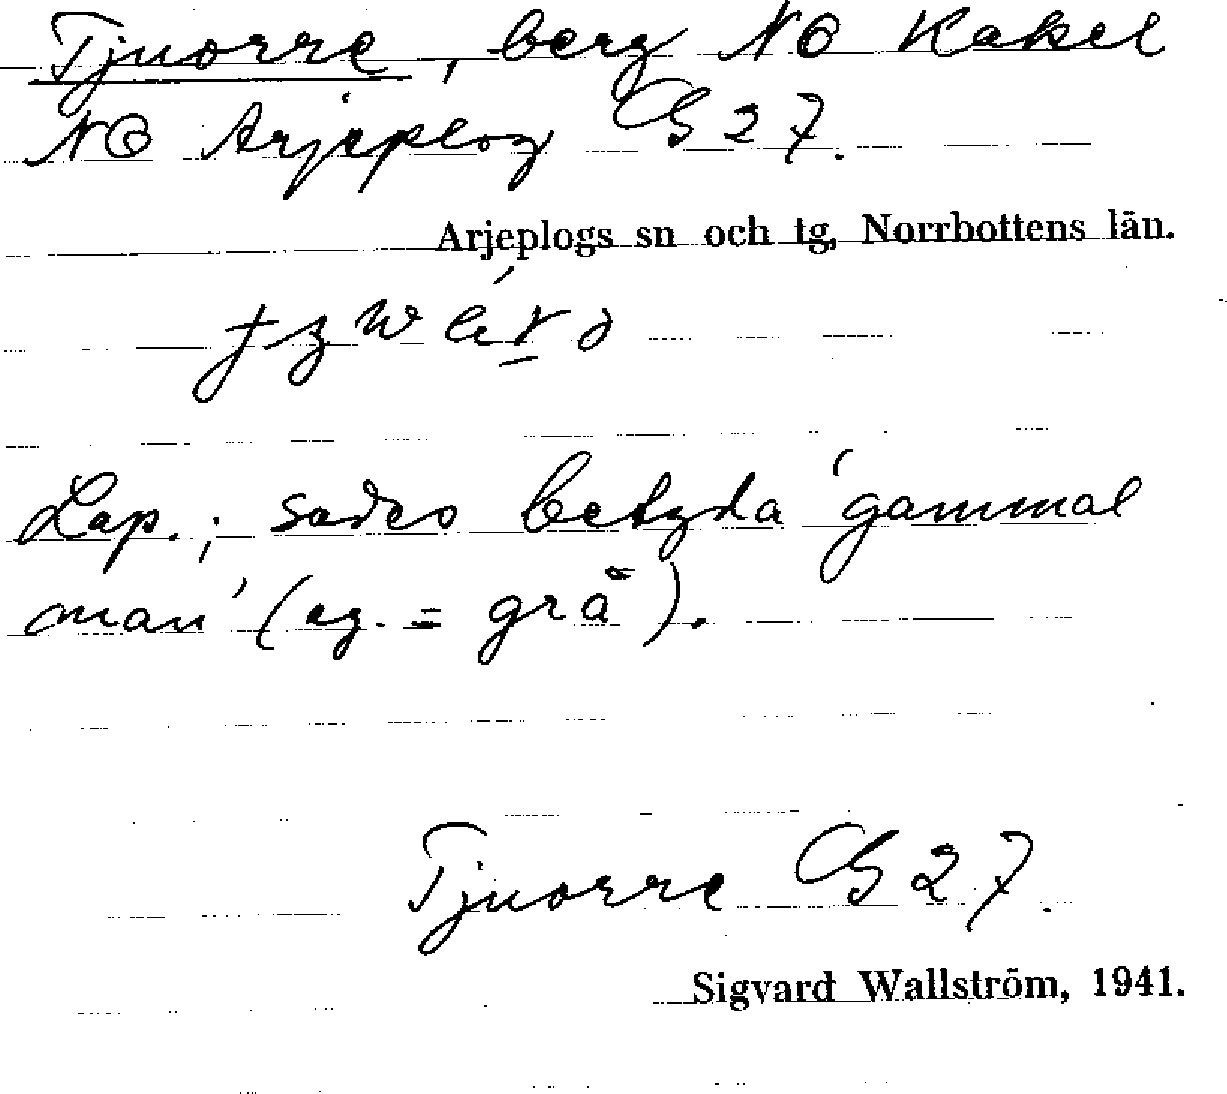 Tjuorre, berg NO Kakel
NO Arjeplog GS 27.
Arjeplogs sn och tg, Norrbottens län.
Lap.; sades betyda 'gammal
man' (eg. = grå).
Tjuorre GS 27.
Sigvard Wallström, 1941.